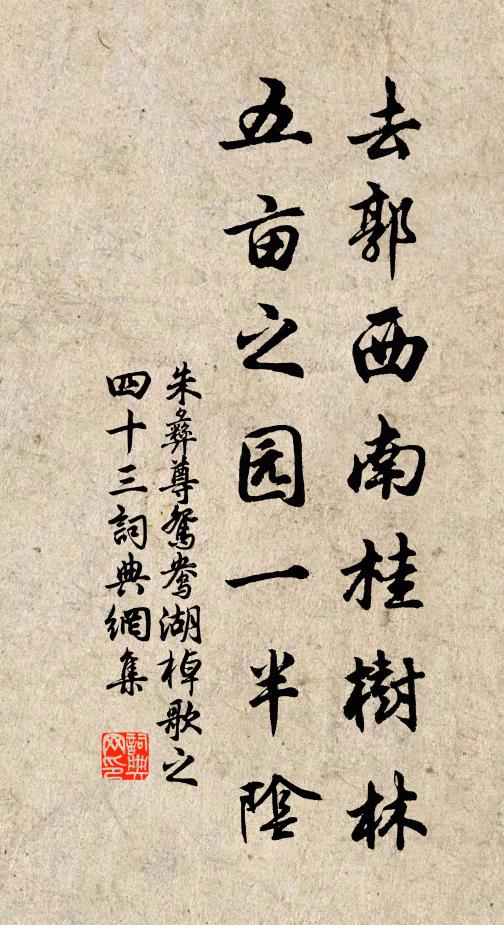 去郭西南桂樹林
五亩之园一半陰
朱彝尊鴛鴦湖棹歌之
四十三詞典網集
詞典网印